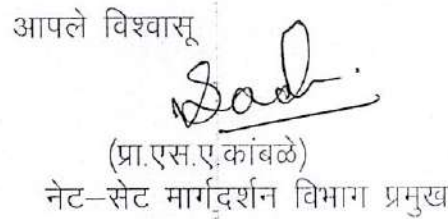 आपले विश्वासू
(प्रा.एस.ए.कांबळे)
नेट-सेट मार्गदर्शन विभाग प्रमुख